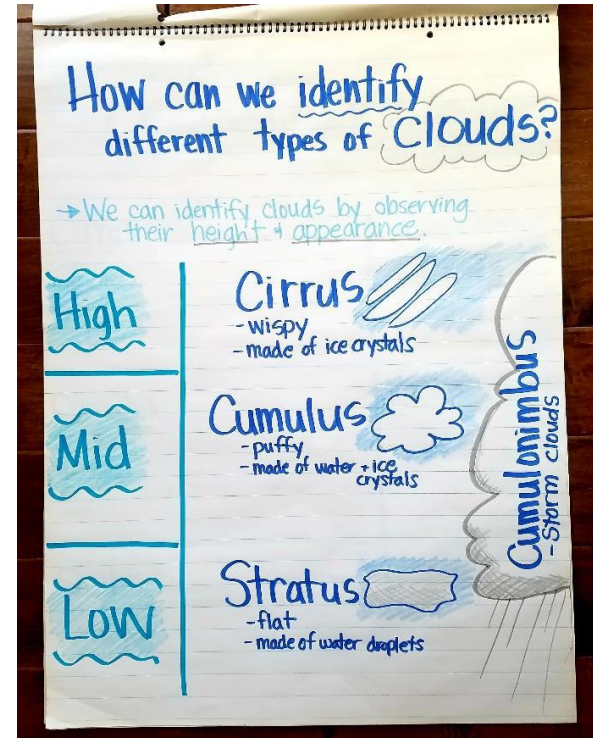 How can we identify
different types of Clouds?
→ We can identify clouds by observing
their height & appearance.
High
Cirrus
- wispy
- made of ice crystals
Mid
Cumulus
- puffy
- made of water + ice
crystals
Low
Stratus
- flat
- made of water droplets
Cumulonimbus
- Storm clouds